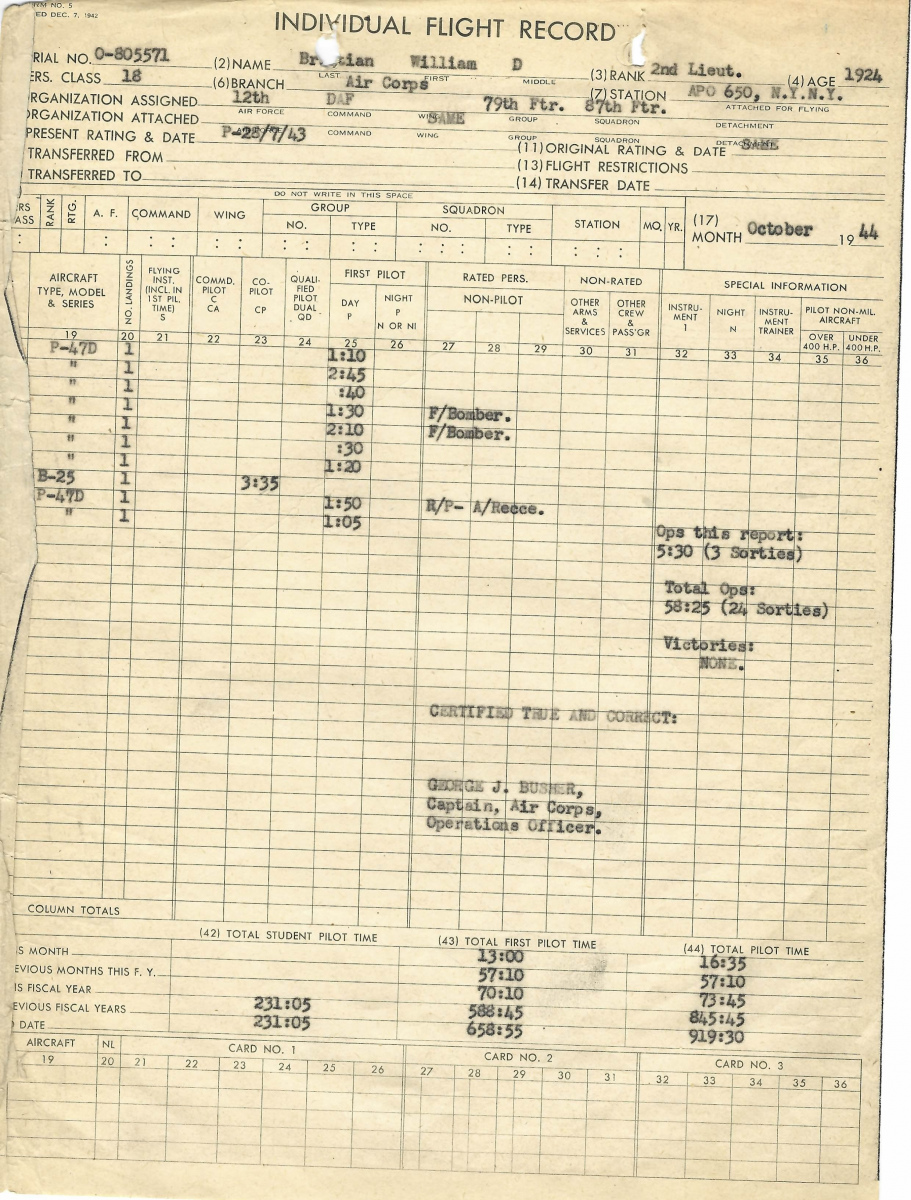 RM NO. 5
ED DEC. 7, 1942
INDIVIDUAL FLIGHT RECORD
RIAL NO. O-805571 (2) NAME Br tian William D (3) RANK 2nd Lieut. (4) AGE 1924
LAST FIRST MIDDLE
ERS. CLASS 18 (6) BRANCH Air Corps (7) STATION APO 650, N.Y.N.Y.
RGANIZATION ASSIGNED 12th DAF 79th Ftr. 87th Ftr.
AIR FORCE COMMAND WING GROUP SQUADRON DETACHMENT
ATTACHED FOR FLYING
RGANIZATION ATTACHED SAME
COMMAND WING GROUP SQUADRON DETACHMENT
PRESENT RATING & DATE P-28/7/43 (11) ORIGINAL RATING & DATE SAME
TRANSFERRED FROM (13) FLIGHT RESTRICTIONS
TRANSFERRED TO (14) TRANSFER DATE
DO NOT WRITE IN THIS SPACE
ERS ASS RANK RTG. A. F. COMMAND WING GROUP NO. TYPE SQUADRON NO. TYPE STATION MO. YR. (17) MONTH October 19 44
AIRCRAFT TYPE, MODEL & SERIES NO. LANDINGS FLYING INST. (INCL. IN 1ST PIL. TIME) S COMMD. PILOT C CA CO-PILOT CP QUALI-FIED PILOT DUAL QD FIRST PILOT DAY P NIGHT P N OR NI RATED PERS. NON-PILOT NON-RATED OTHER ARMS & SERVICES OTHER CREW & PASS'GR SPECIAL INFORMATION INSTRU-MENT I NIGHT N INSTRU-MENT TRAINER PILOT NON-MIL. AIRCRAFT OVER 400 H.P. UNDER 400 H.P.
19 20 21 22 23 24 25 26 27 28 29 30 31 32 33 34 35 36
P-47D 1 1:10
" 1 2:45
" 1 :40
" 1 1:30 F/Bomber.
" 1 2:10 F/Bomber.
" 1 :30
" 1 1:20
B-25 1 3:35
P-47D 1 1:50 R/P- A/Recce.
" 1 1:05
Ops this report:
5:30 (3 Sorties)
Total Ops:
58:25 (24 Sorties)
Victories:
NONE.
CERTIFIED TRUE AND CORRECT:
GEORGE J. BUSHER,
Captain, Air Corps,
Operations Officer.
COLUMN TOTALS
(42) TOTAL STUDENT PILOT TIME (43) TOTAL FIRST PILOT TIME (44) TOTAL PILOT TIME
S MONTH 13:00 16:35
EVIOUS MONTHS THIS F. Y. 57:10 57:10
IS FISCAL YEAR 70:10 73:45
EVIOUS FISCAL YEARS 231:05 588:45 845:45
DATE 231:05 658:55 919:30
AIRCRAFT NL CARD NO. 1 CARD NO. 2 CARD NO. 3
19 20 21 22 23 24 25 26 27 28 29 30 31 32 33 34 35 36